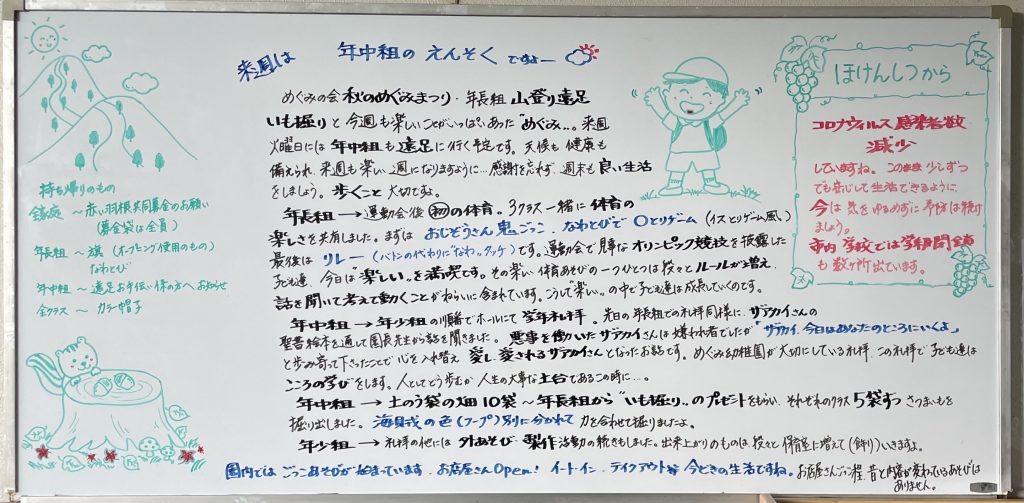 来週は 年中組の えんそく ですよー
めぐみの会 秋のめぐみまつり・年長組 山登り遠足
いも掘りと 今週も楽しいことがいっぱいあった"めぐみ"…。来週
火曜日には 年中組も遠足に行く予定です。天候も 健康も
備えられ 来週も楽しい週になりますように…感謝を忘れず 週末も 良い生活
をしましょう。歩くこと 大切ですよ。
年長組 → 運動会後 初の体育。3クラス一緒に 体育の
楽しさを共有しました。まずは おじぞうさん鬼ごっこ なわとびで ○とりゲーム (イスとりゲーム風)
最後は リレー (バトンの代わりに"なわ。タッチ)です。運動会で 見事な オリンピック競技を披露した
子ども達 今日は"楽しい"を満喫です。その楽しい 体育あそびの一つひとつは 段々と ルールが増え
話を聞いて考えて動くことがねらいに含まれています。こうして"楽しい"の中で子ども達は成長していくのです。
年中組 → 年少組の順番でホールにて 学年礼拝。先日の年長組での礼拝同様に ザアカイさんの
聖書絵本を通して園長先生から話を聞きました。悪事を働いたザアカイさんは嫌われ者でしたが「ザアカイ 今日はあなたのところにいくよ」
と歩み寄って下さったことで 心を入れ替え 愛し 愛されるザアカイさんとなったお話です。めぐみ幼稚園が大切にしている礼拝 この礼拝で子ども達は
こころの学びをします。人としてどう歩むか 人生の大事な土台であるこの時に…。
年中組 → 土のう袋の畑 10袋 ～ 年長組から"いも掘り"のプレゼントをもらい それぞれのクラス 5袋ずつ さつまいもを
掘り出しました。海賊我の色(フープ)別に分かれて 力を合わせて掘りましたよ。
年少組 → 礼拝の他には 外あそび 製作活動の続きもしました。出来上がりのものは 段々と保育室に増えて(飾り)いきますよ。
園内では ごっこあそびが始まっています お店屋さん Open! イートイン テイクアウト等 今どきの生活ですね。お店屋さんごっこ程 昔と内容が変わっているあそびは
ありません。
持ち帰りのもの
全家庭 ～ 赤い羽根共同募金のお願い
(募金袋は全員)
年長組 ～ 旗 (オープニング使用のもの)
なわとび
年中組 ～ 遠足お手伝い係の方へお知らせ
全クラス ～ カラー帽子
ほけんしつから
コロナウィルス 感染者数
減少
していますね。このまま 少しずつ
でも安心して生活できるように
今は 気をゆるめずに 予防は続け
ましょう。
市内 学校では学級閉鎖
も数ヶ所出ています。